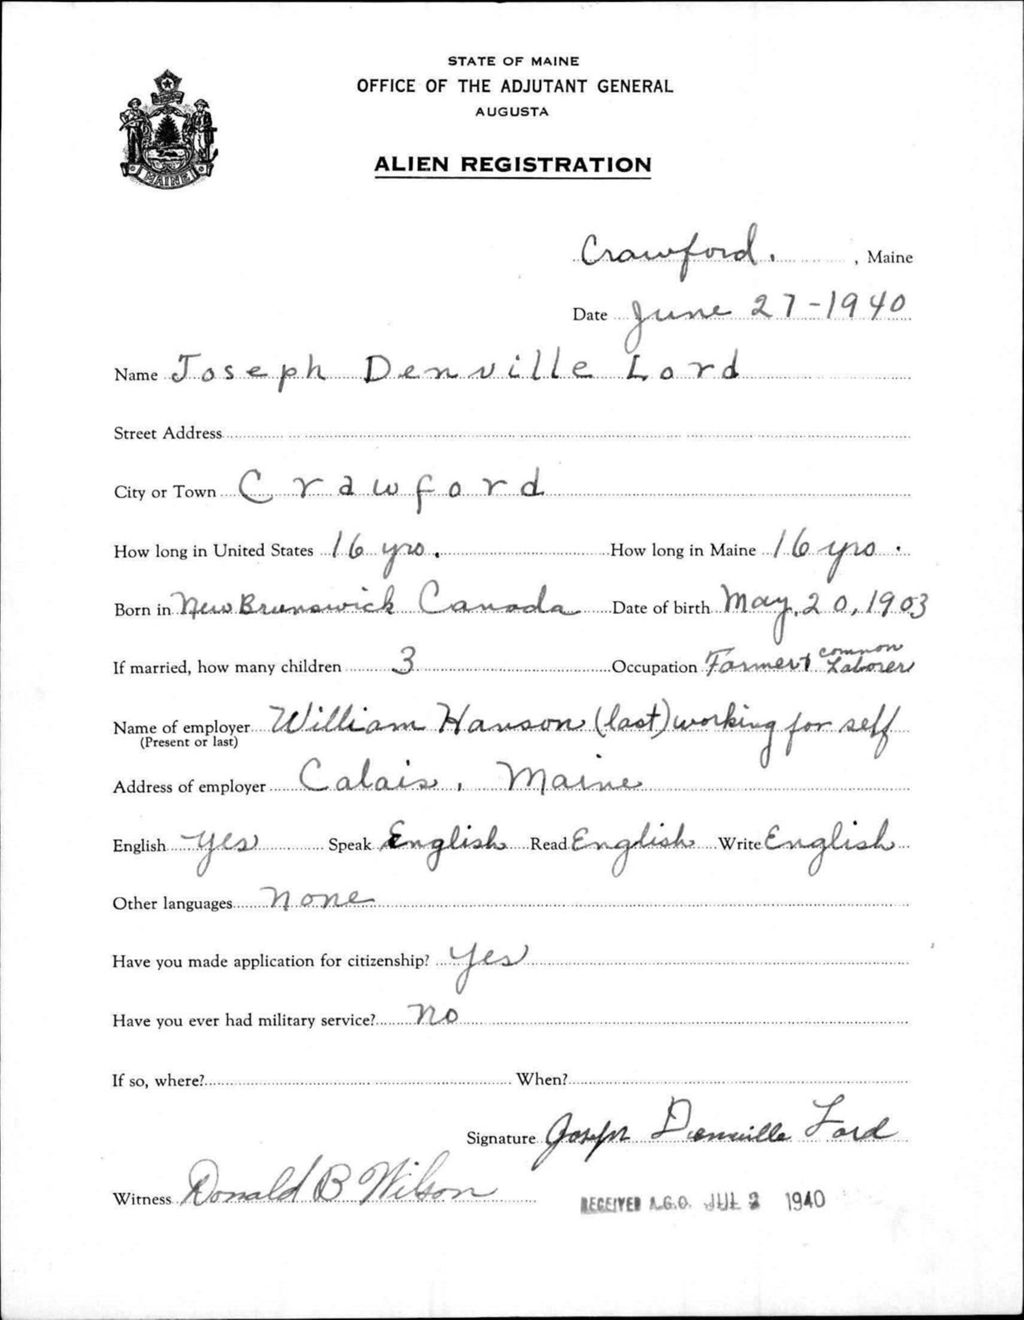 STATE OF MAINE
OFFICE OF THE ADJUTANT GENERAL
AUGUSTA
ALIEN REGISTRATION
MAINE
Crawford. , Maine
Date June 27-1940
Name Joseph Denville Lord
Street Address
City or Town Crawford
How long in United States 16 yrs. How long in Maine 16 yrs.
Born in New Brunswick Canada Date of birth May, 20, 1903
If married, how many children 3 Occupation Farmer + common Laborer
Name of employer William Hanson (last) working for self
(Present or last)
Address of employer Calais, Maine
English Yes Speak English Read English Write English
Other languages none
Have you made application for citizenship? Yes
Have you ever had military service? no
If so, where? When?
Signature Joseph Denville Lord
Witness Donald B Wilson
RECEIVED A.G.O. JUL 2 1940